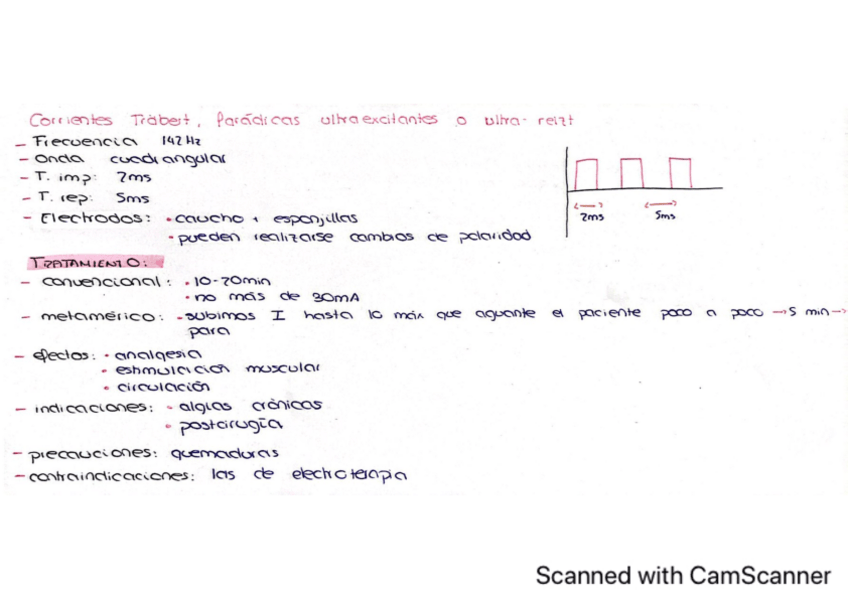 Corrientes Träbert, Farádicas ultraexcitantes o ultra-reizt
- Frecuencia 142 Hz
- Onda cuadrangular
- T. imp: 2ms
- T. rep: 5ms
- Electrodos: • caucho + esponjillas
• pueden realizarse cambios de polaridad
2ms 5ms
TRATAMIENTO:
- convencional: • 10-20min
• no más de 30mA
- metamérico: • subimos I hasta lo máx que aguante el paciente poco a poco → 5 min →
para
- efectos: • analgesia
• estimulación muscular
• circulación
- indicaciones: • algias crónicas
• postcirugía
- precauciones: quemaduras
- contraindicaciones: las de electroterapia
Scanned with CamScanner